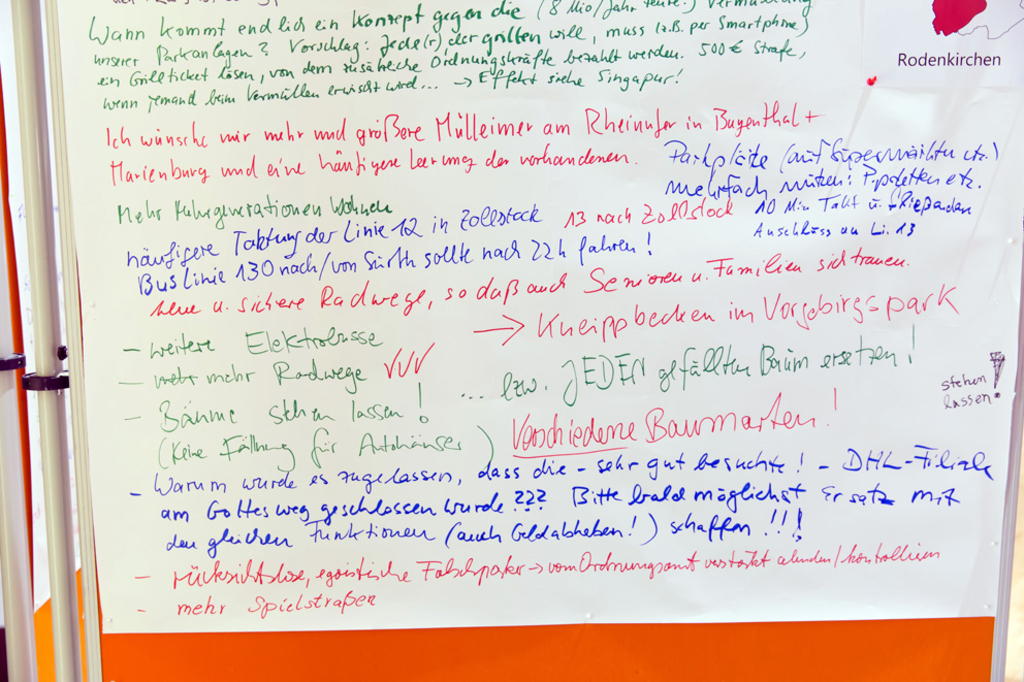 Wann kommt endlich ein Konzept gegen die (8 Mio/Jahr teure!) Vermüllung
unserer Parkanlagen? Vorschlag: Jede(r), der grillen will, muss (z.B. per Smartphone)
ein Grillticket lösen, von dem zusätzliche Ordnungskräfte bezahlt werden. 500 € Strafe,
wenn jemand beim Vermüllen erwischt wird... → Effekt siehe Singapur!
Rodenkirchen
Ich wünsche mir mehr und größere Mülleimer am Rheinufer in Bayenthal +
Marienburg und eine häufigere Leerung der vorhandenen.
Parkplätze (auf Supermärkten etc.)
mehrfach nutzen: P.paletten etc.
Mehr Mehrgenerationen Wohnen
häufigere Taktung der Linie 12 in Zollstock
13 nach Zollstock
10 Min Takt u.
Anschluss an Li. 13
Bus Linie 130 nach/von Sürth sollte nach 22h fahren!
neue u. sichere Radwege, so daß auch Senioren u. Familien sich trauen.
→ Kneippbecken im Vorgebirgspark
– weitere Elektrobusse
– mehr mehr Radwege ✓✓✓
... bzw. JEDEN gefällten Baum ersetzen!
stehen
lassen!
– Bäume stehen lassen!
(Keine Fällung für Autohäuser)
Verschiedene Baumarten!
– Warum wurde es zugelassen, dass die – sehr gut besuchte! – DHL-Filiale
am Gottesweg geschlossen wurde??? Bitte bald möglichst Ersatz mit
den gleichen Funktionen (auch Geldabheben!) schaffen!!!
– rücksichtslose, egoistische Falschparker → vom Ordnungsamt verstärkt ahnden/kontrollieren
– mehr Spielstraßen